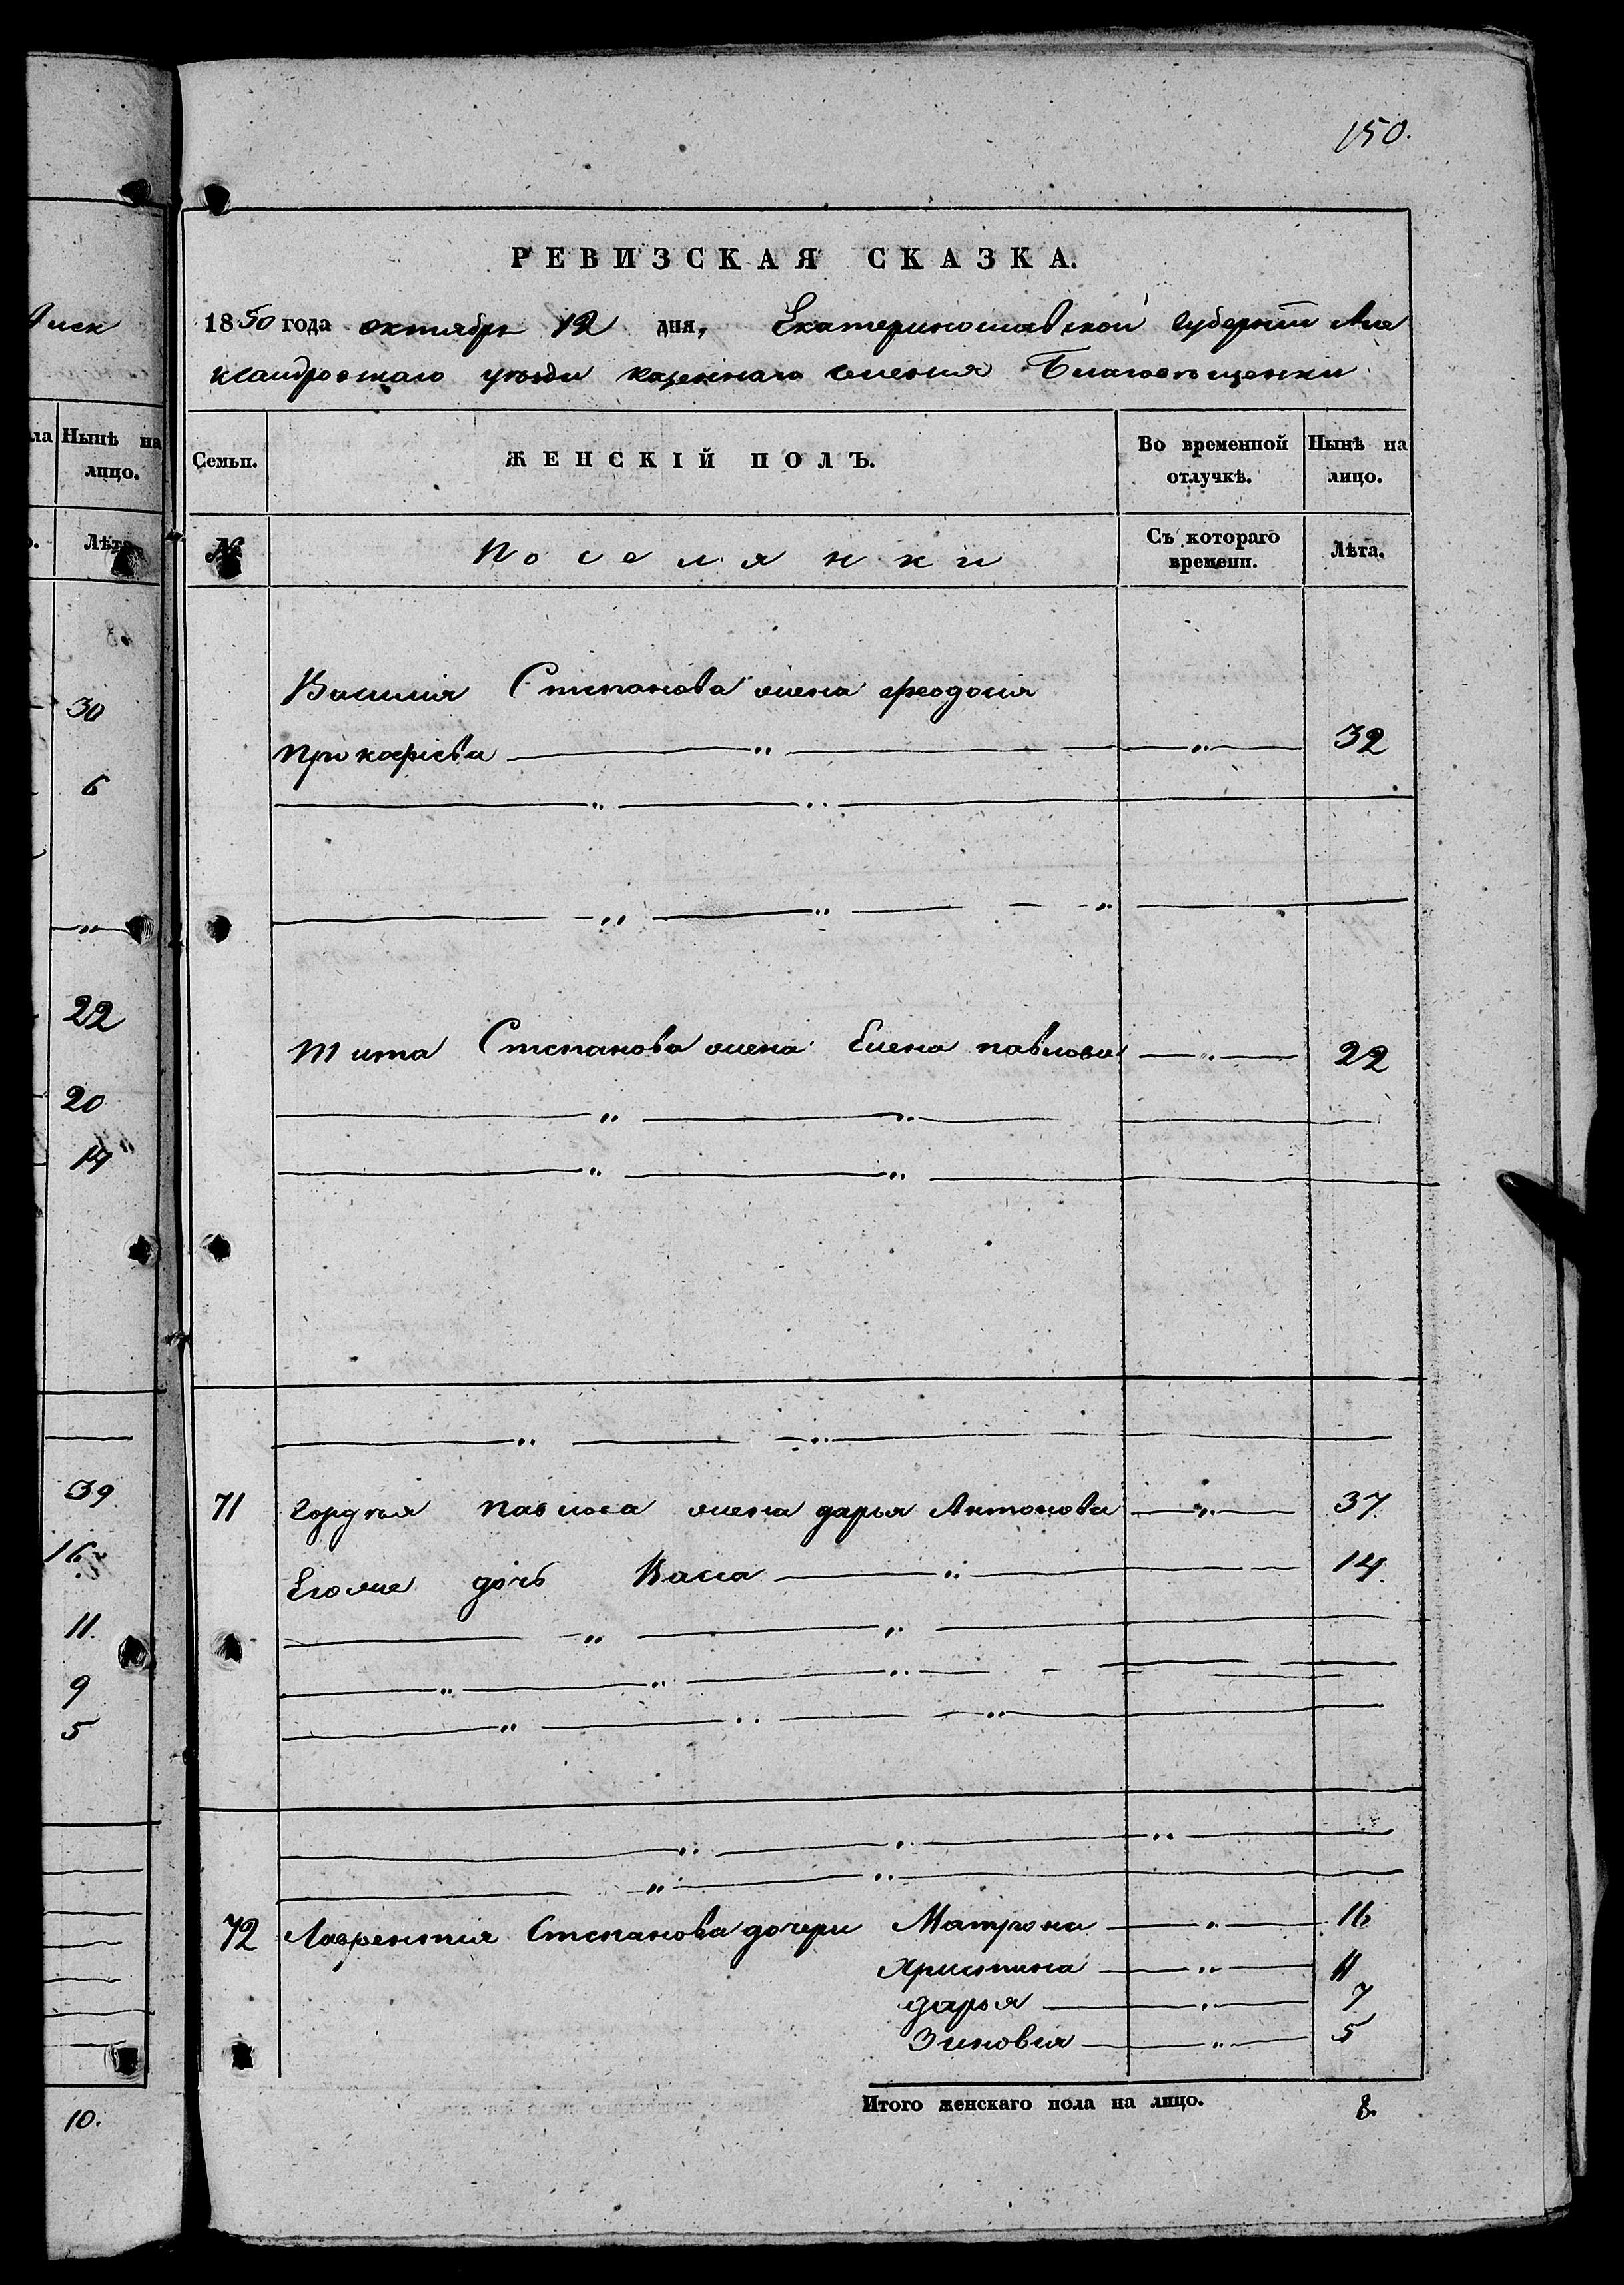 150.
РЕВИЗСКАЯ СКАЗКА.
1850 года октября 12 дня, Екатеринославской Губернии Але
ксандровскаго уезда казеннаго селения Благовещенки
Нынѣ на
лицо.
Лѣта
30
6
22
20
14
39
16
11.
9
5
10.
Семьи. ЖЕНСКІЙ ПОЛЪ. Во временной отлучкѣ. Нынѣ на лицо.
№ Поселянки Съ котораго времени. Лѣта.
Василия Степанова жена Феодосия
Прокофиева — " — " — 32
Тита Степанова жена Елена павлова — " — 22
71 Гордѣя павлова жена дарья Антонова — " — 37
Его же дочь Васса — " — 14.
72 Лаврентия Степанова дочери Матрона — " — 16
Христина — " — 11
дарья — " — 7
Зиновия — " — 5
Итого женскаго пола на лицо. 8.